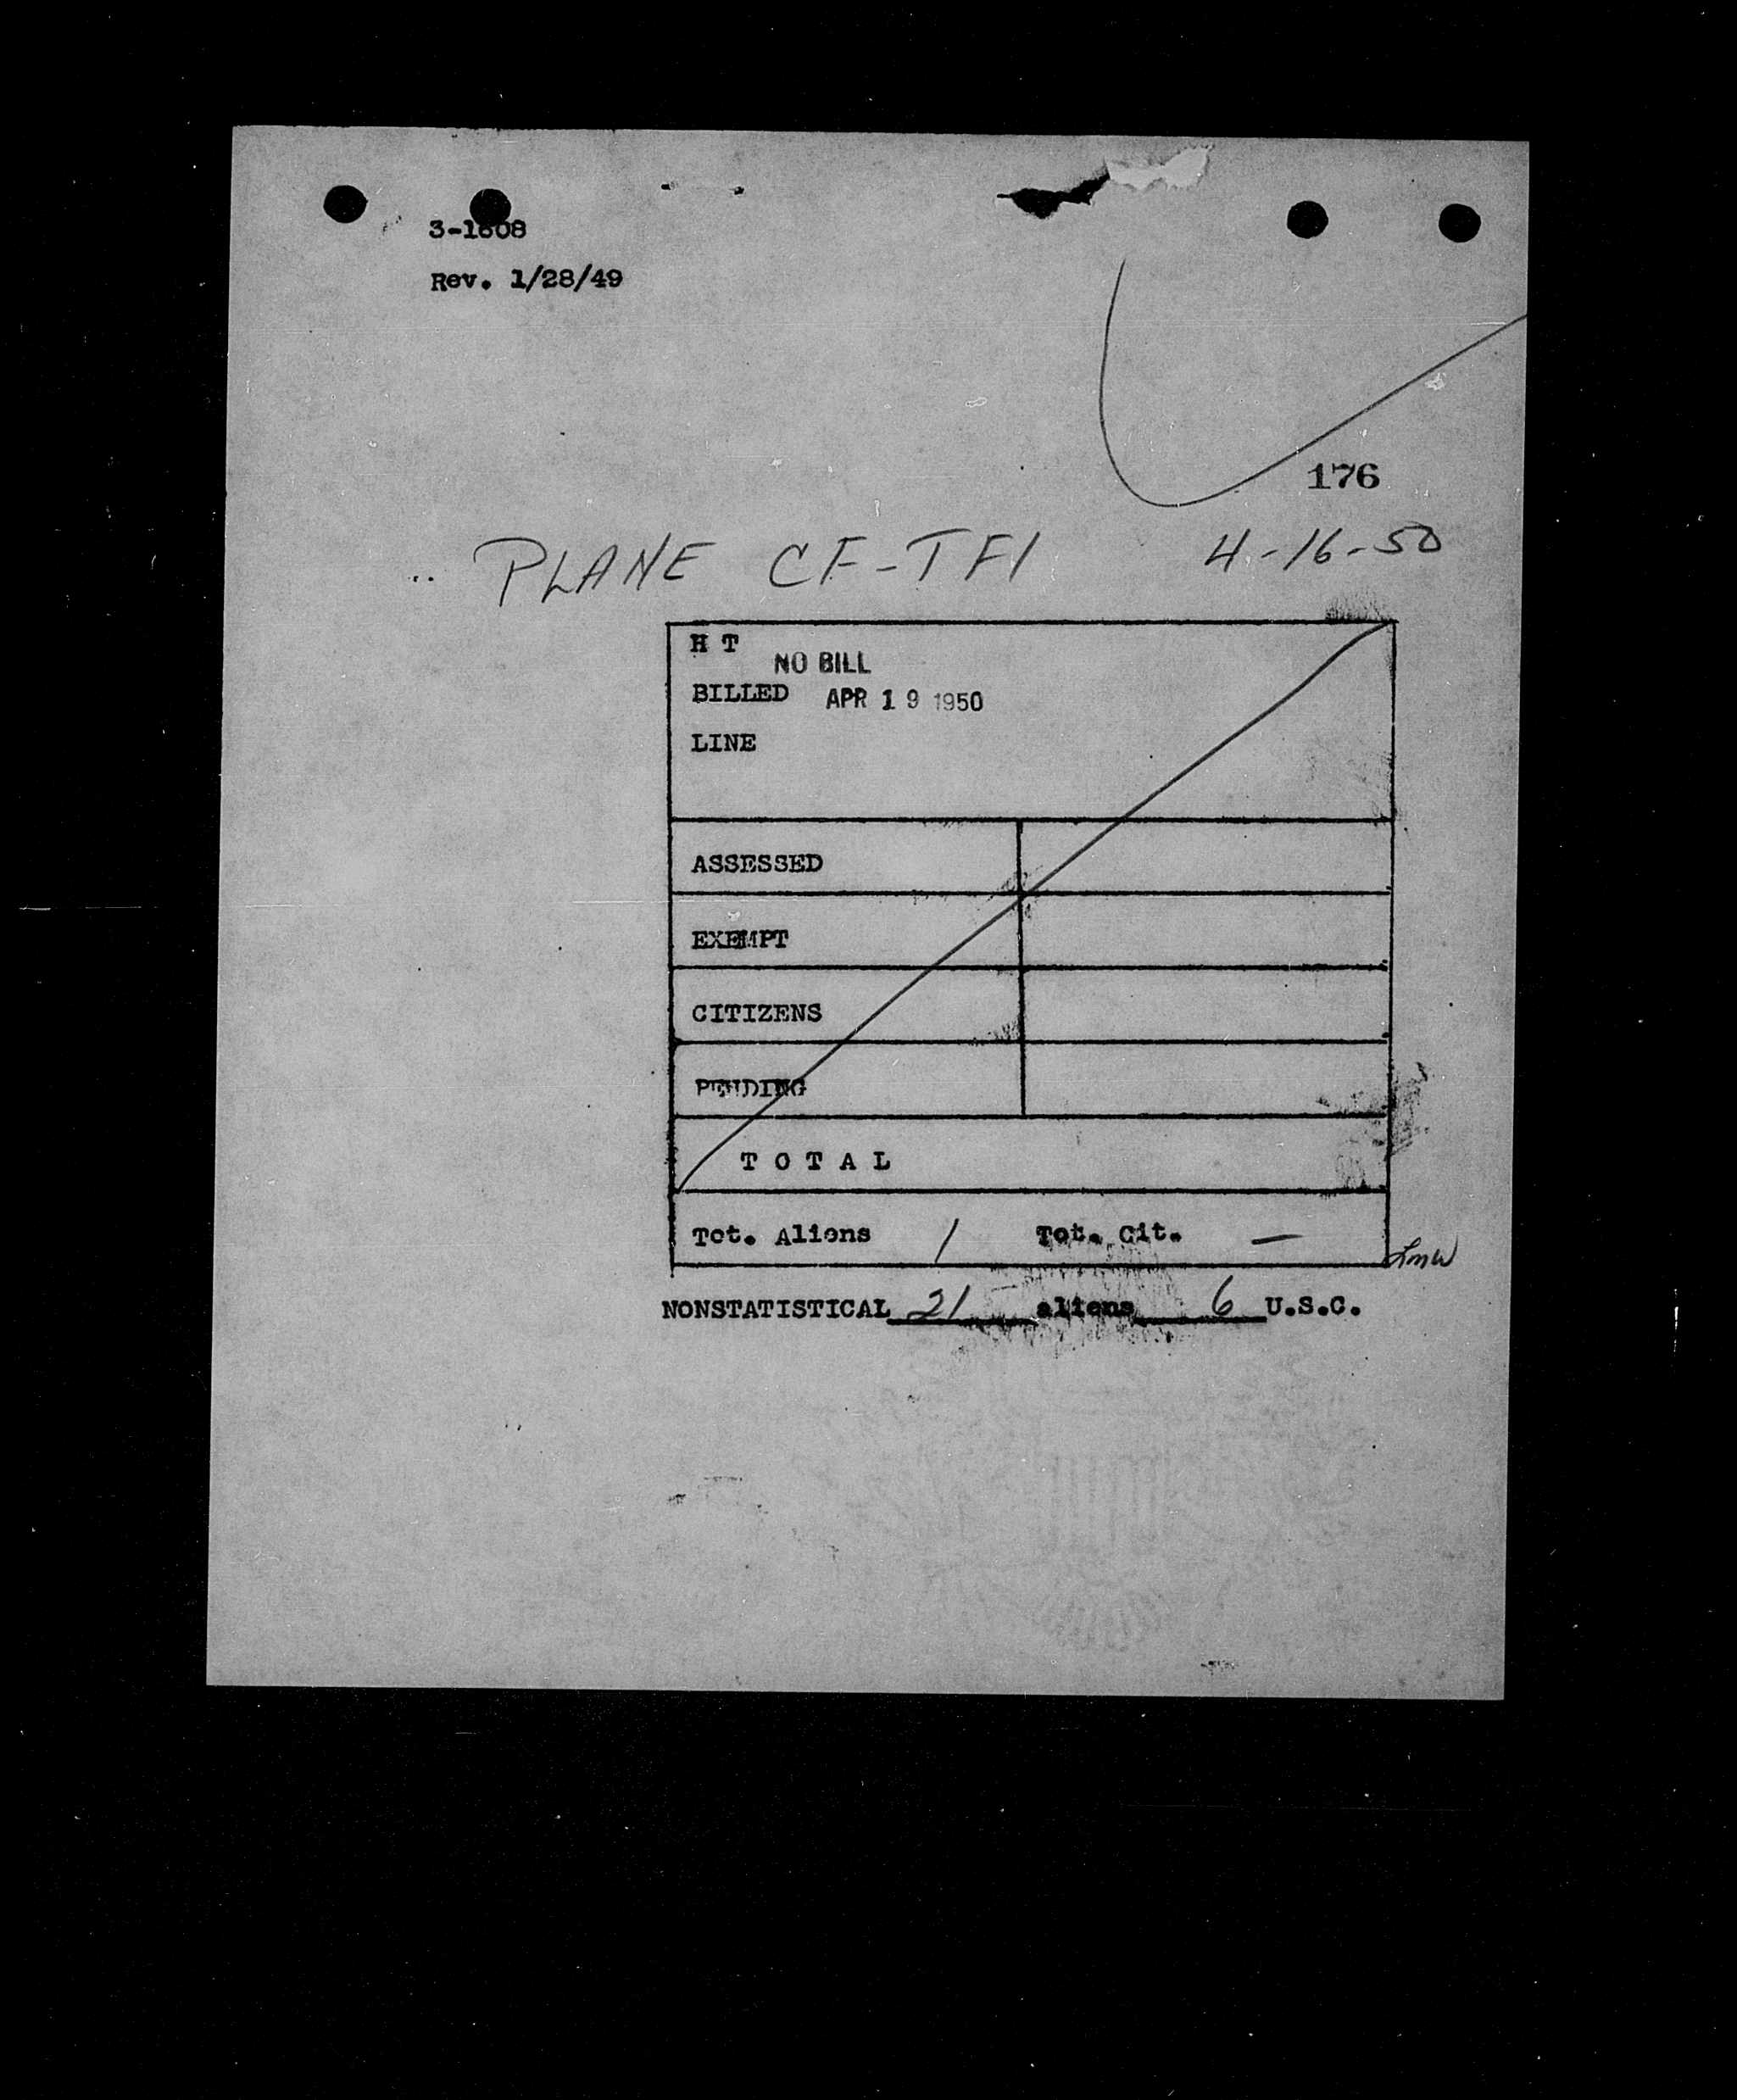 3-1608
Rev. 1/28/49
176
PLANE CF-TFI 4-16-50
H T
NO BILL
BILLED APR 19 1950
LINE
ASSESSED
EXEMPT
CITIZENS
PENDING
T O T A L
Tot. Aliens 1 Tot. Cit. —
LMW
NONSTATISTICAL 21 aliens 6 U.S.C.